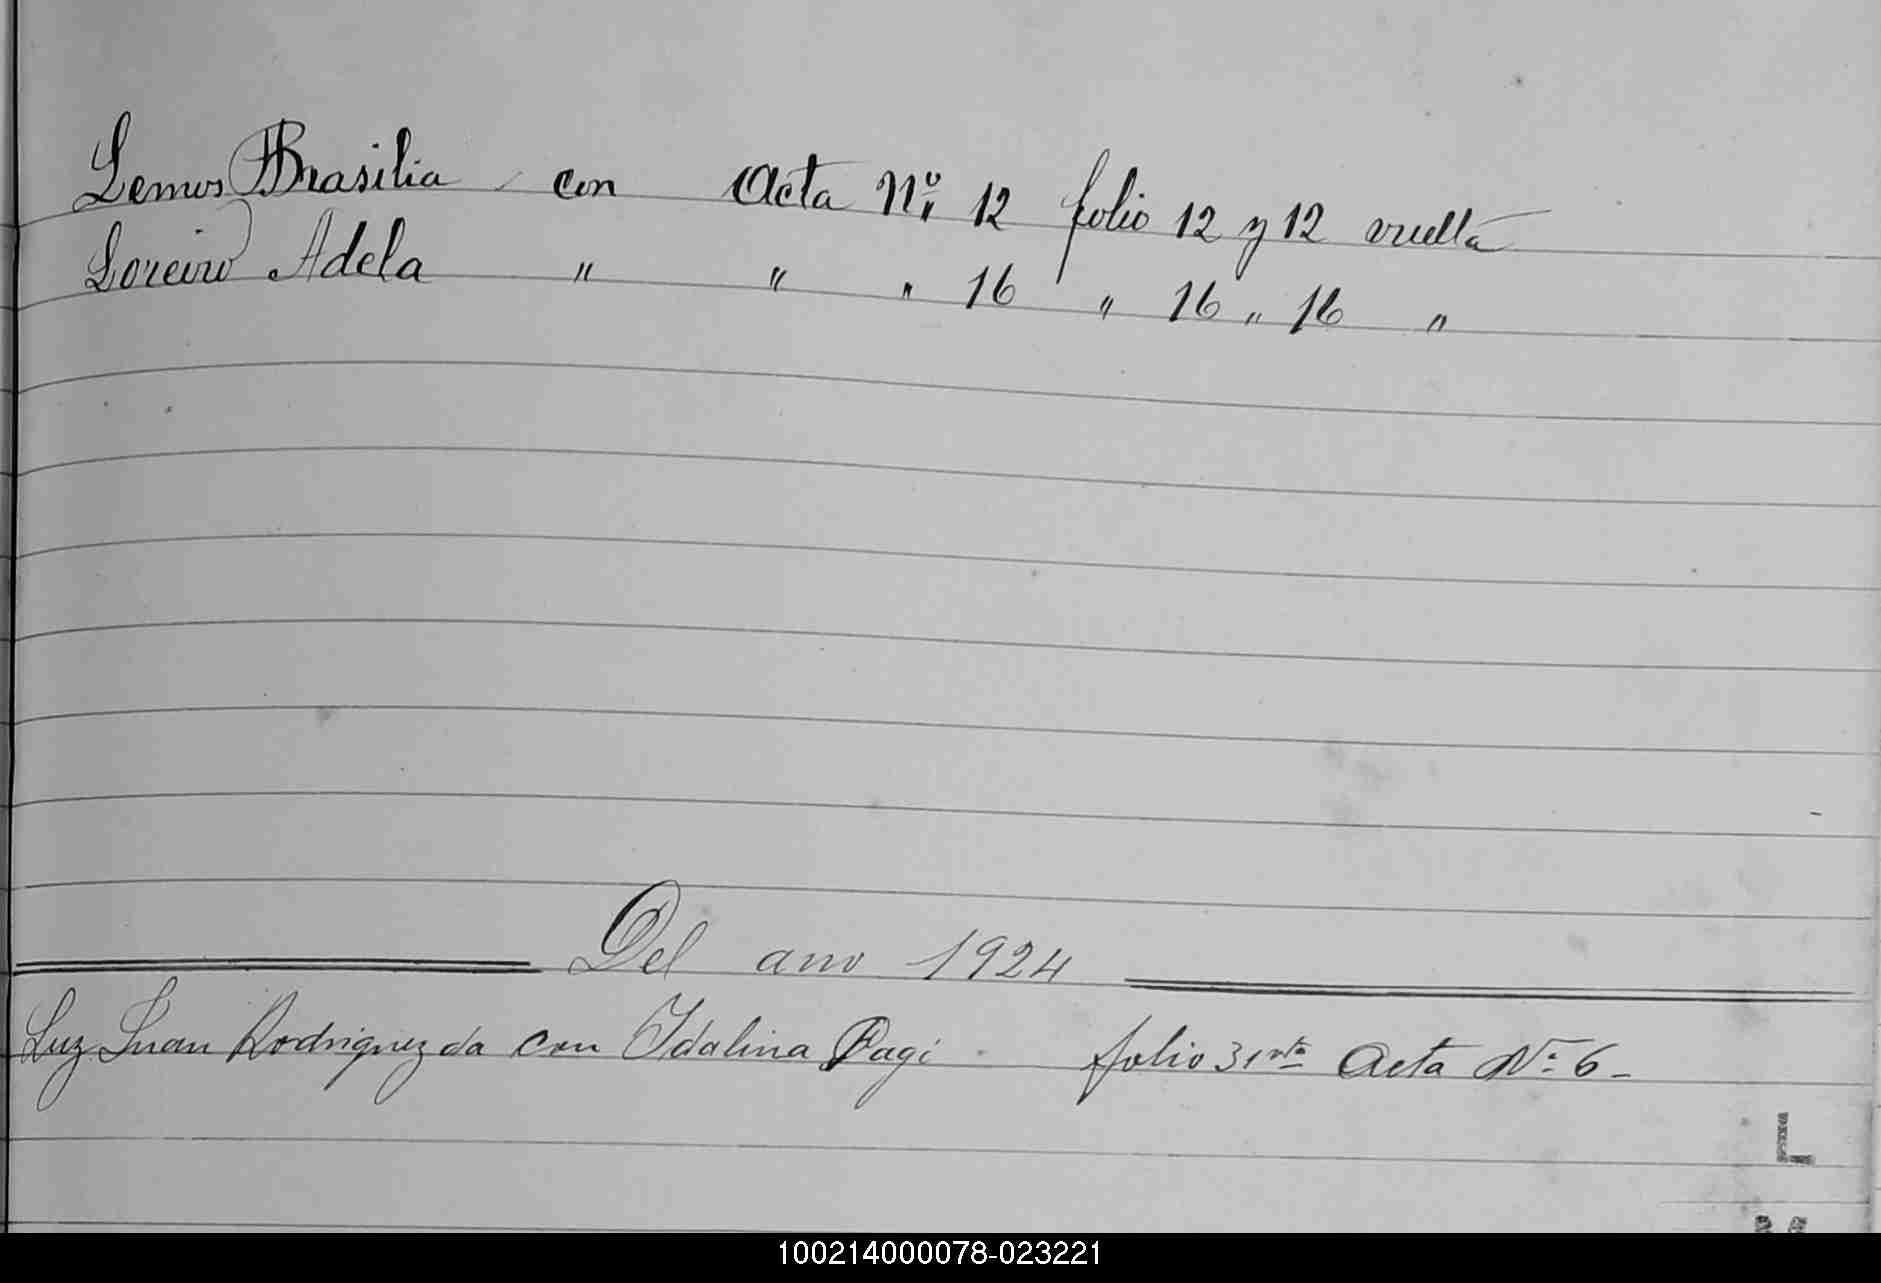 Lemus Brasilia con Acta Nº 12 folio 12 y 12 vuelta
Loreiro Adela " " " 16 " 16 " 16 "
Del ano 1924
Luz Juan Rodriguez da con Idalina Pagi folio 31 vta Acta Nº 6-
L
100214000078-023221